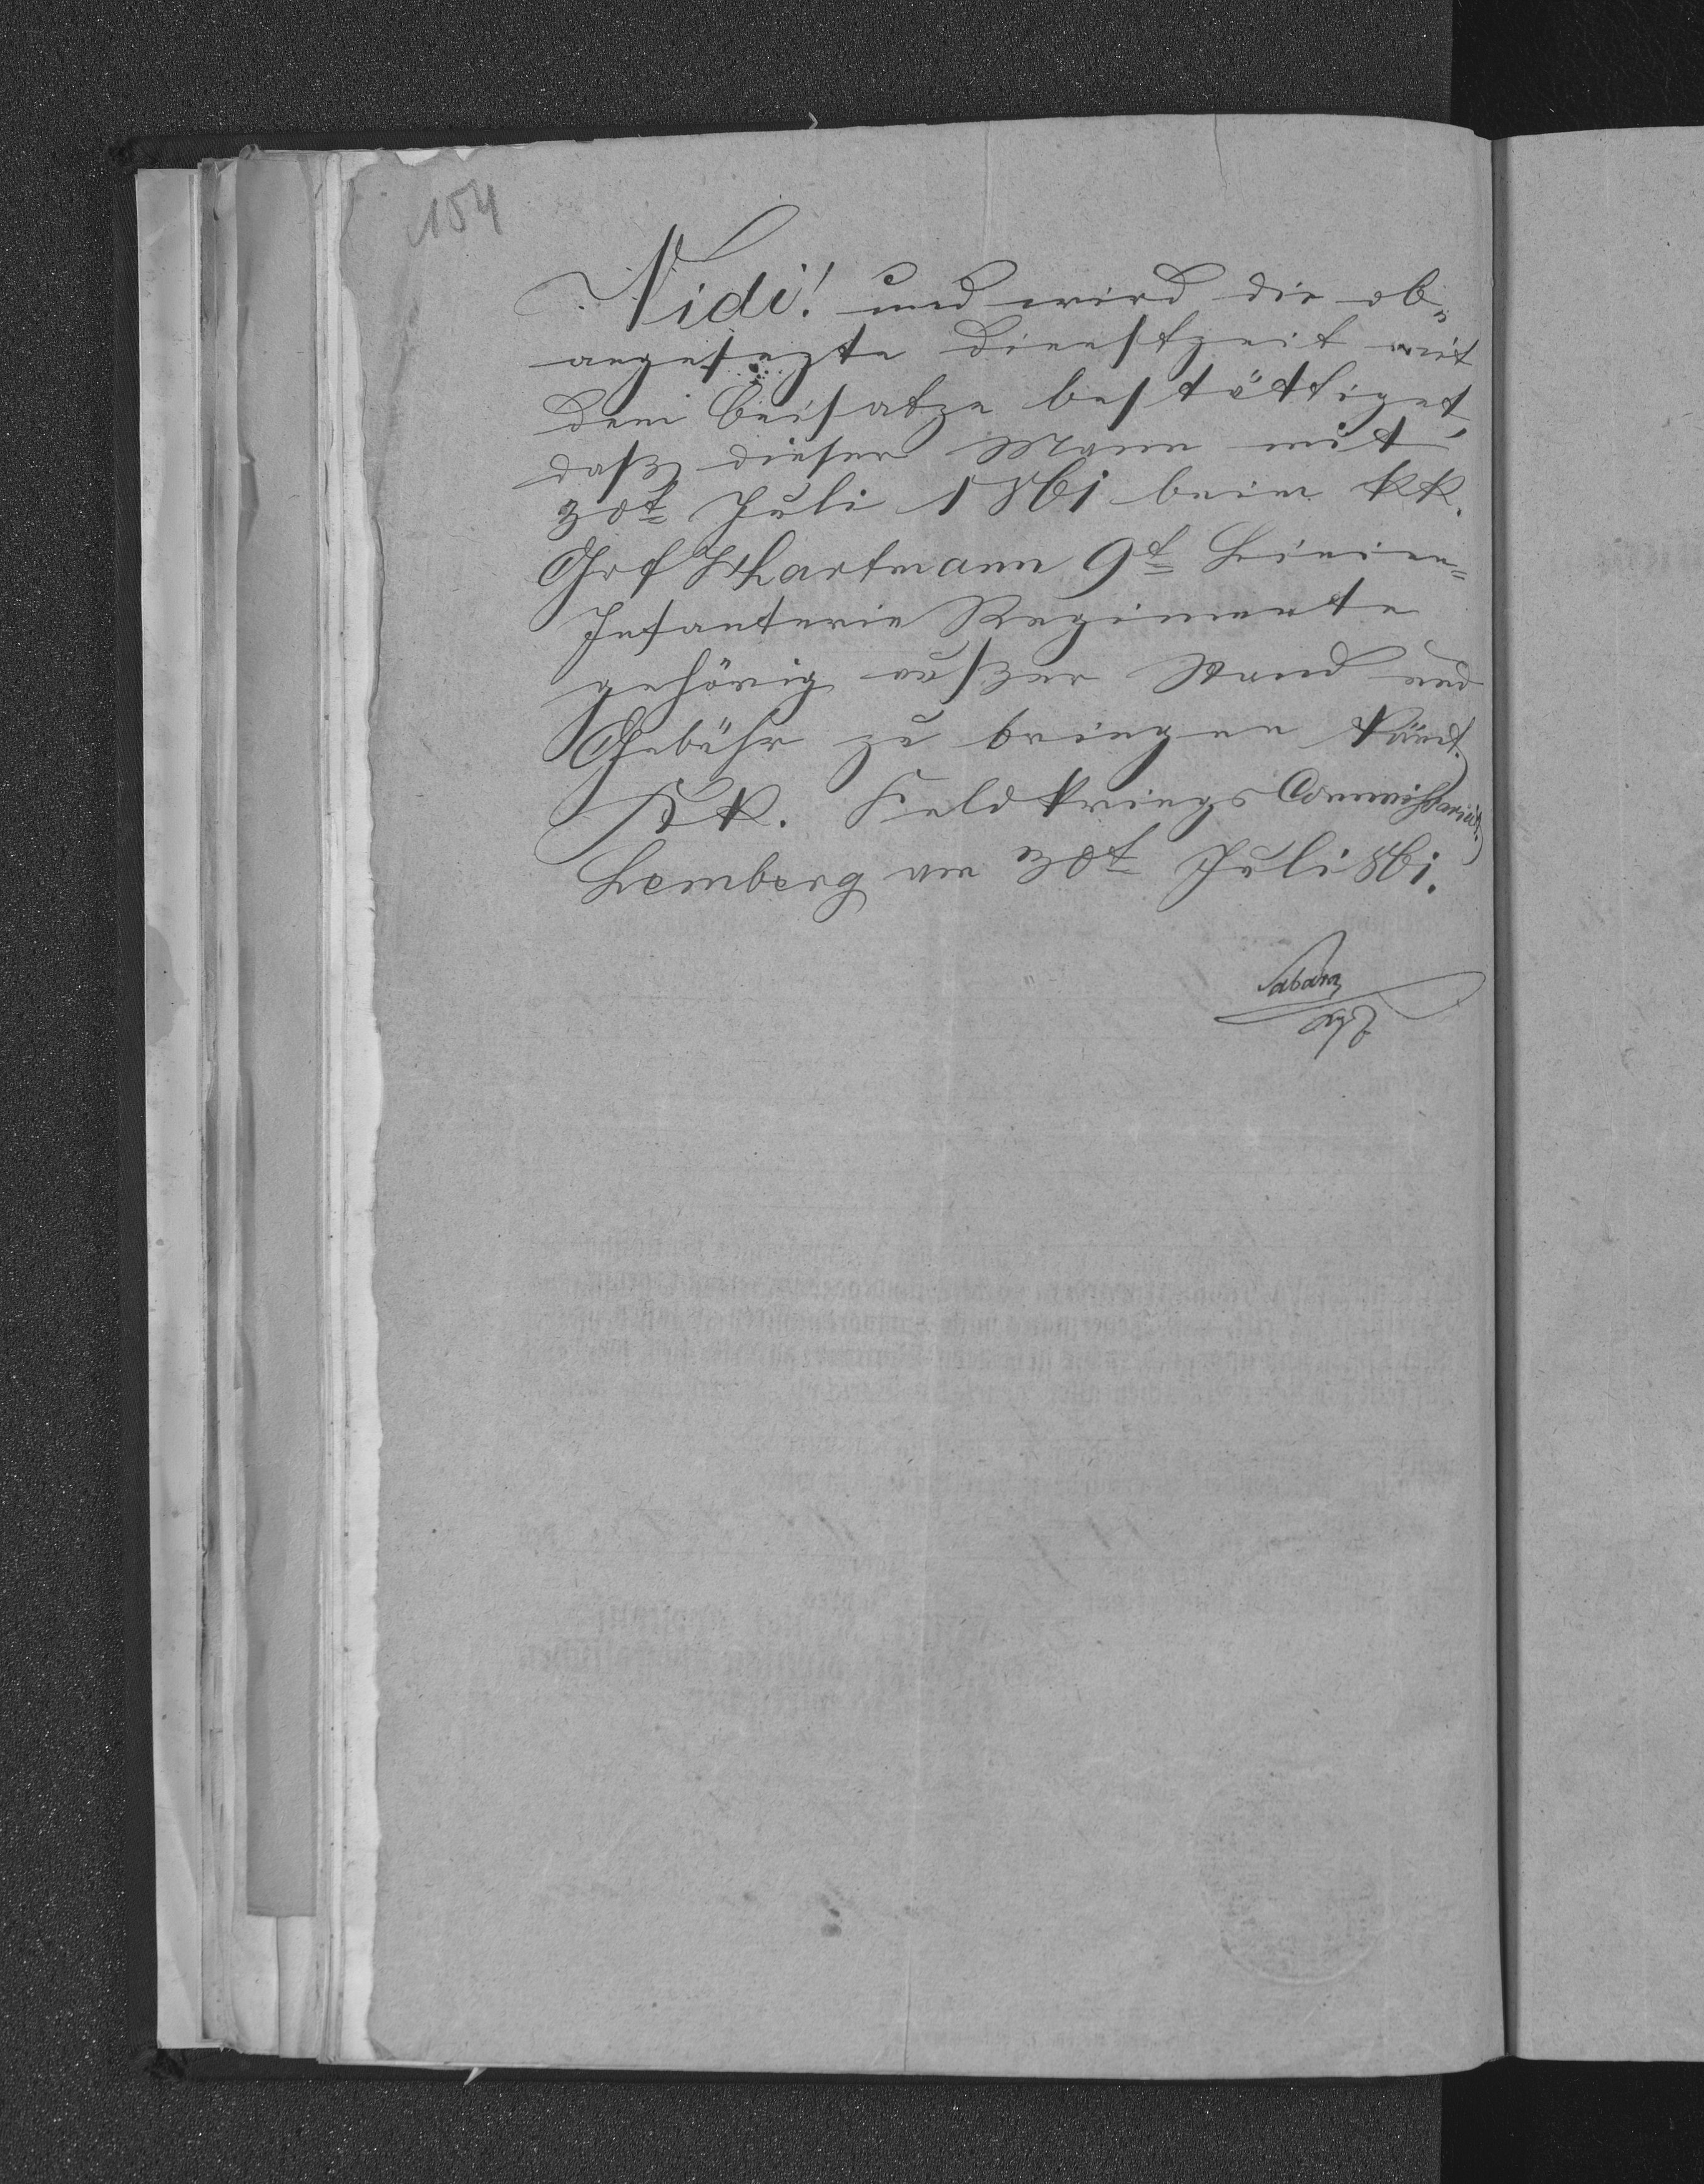 154
Vidi! und wird die ob=
angesezte Dienstzeit mit
dem Beisatze bestättiget,
daß dieser Mann mit
30t Juli 1861 beim kk.
Grf Hartmann 9t Linien=
Infanterie Regimente
gehörig außer Stand und
Gebühr zu bringen kömt.
KK. Feldkriegs Commissariat.
Lemberg am 30t Juli 861.